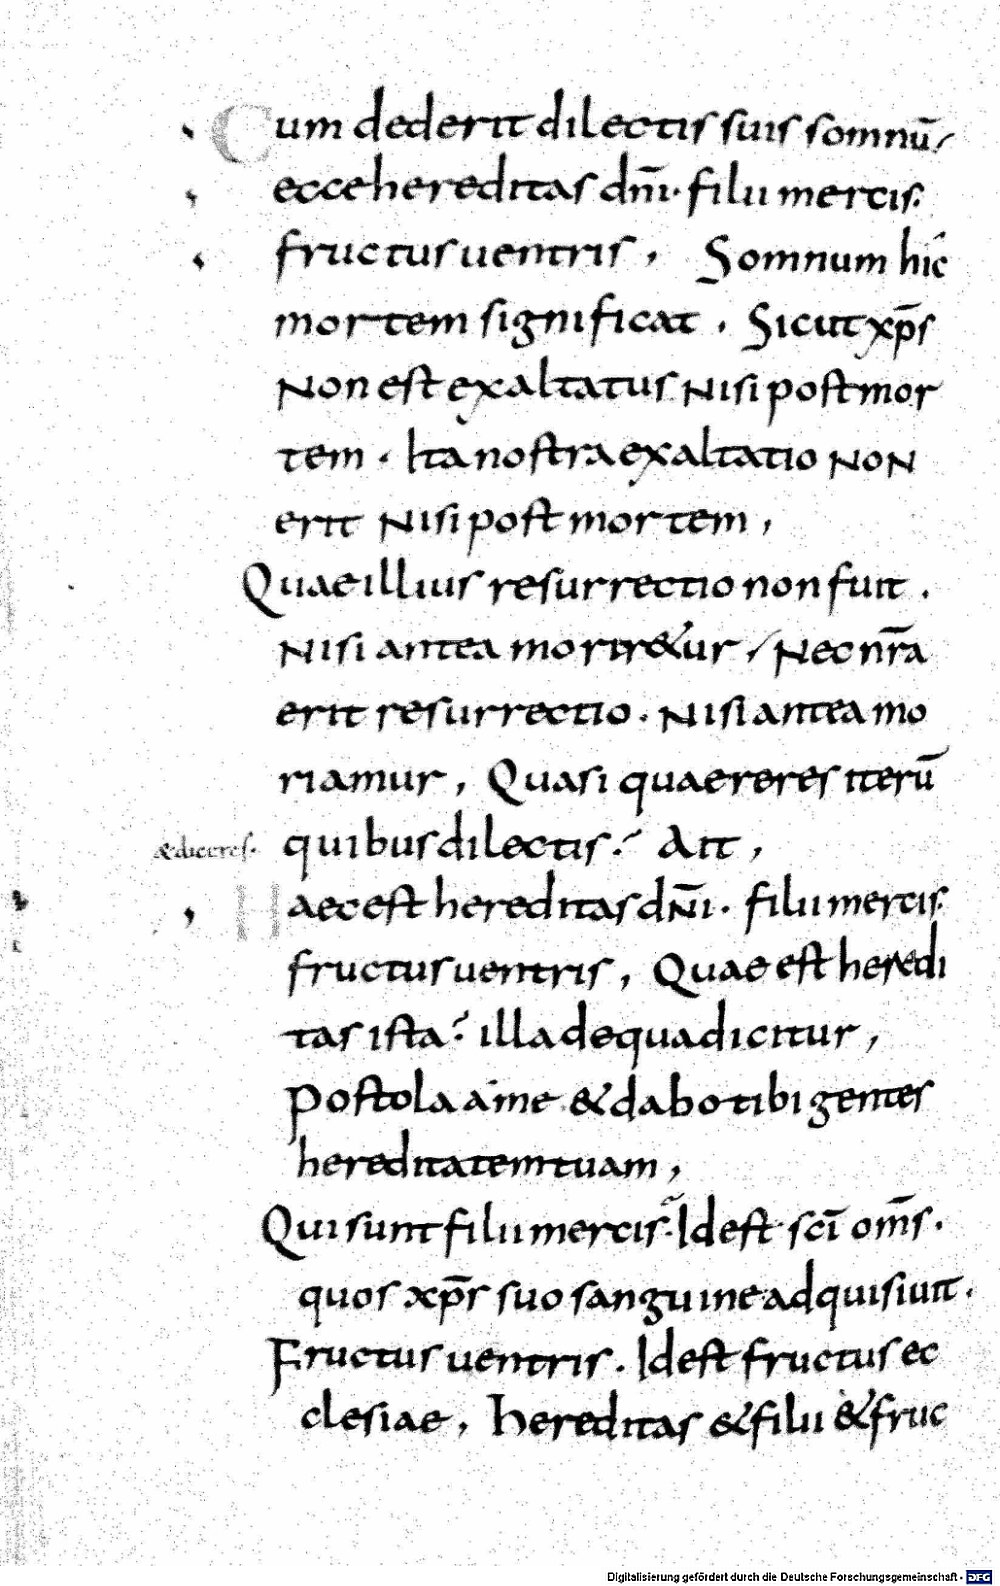 Cum dederit dilectis suis somnū/
ecce hereditas dn̄i· filii mercis.
fructus uentris, Somnum hic
mortem significat. Sicut xp̄s
Non est exaltatus Nisi post mor
tem· Ita nostra exaltatio NoN
erit Nisi post mortem,
Quae illius resurrectio non fuit.
Nisi antea morir&ur / Nec nr̄a
erit resurrectio· Nisi antea mo
riamur, Quasi quaereres iterū
&diceres· quibus dilectis? Ait,
Haec est hereditas dn̄i· filii mercis.
fructus uentris, Quae est heredi
tas ista? illa de qua dicitur,
Postola a me & dabo tibi gentes
hereditatem tuam,
Qui sunt filii mercis? Id est sc̄i om̄s.
quos xp̄s suo sanguine adquisiuit.
Fructus uentris. Id est fructus ec
clesiae, Hereditas & filii & fruc
Digitalisierung gefördert durch die Deutsche Forschungsgemeinschaft - DFG